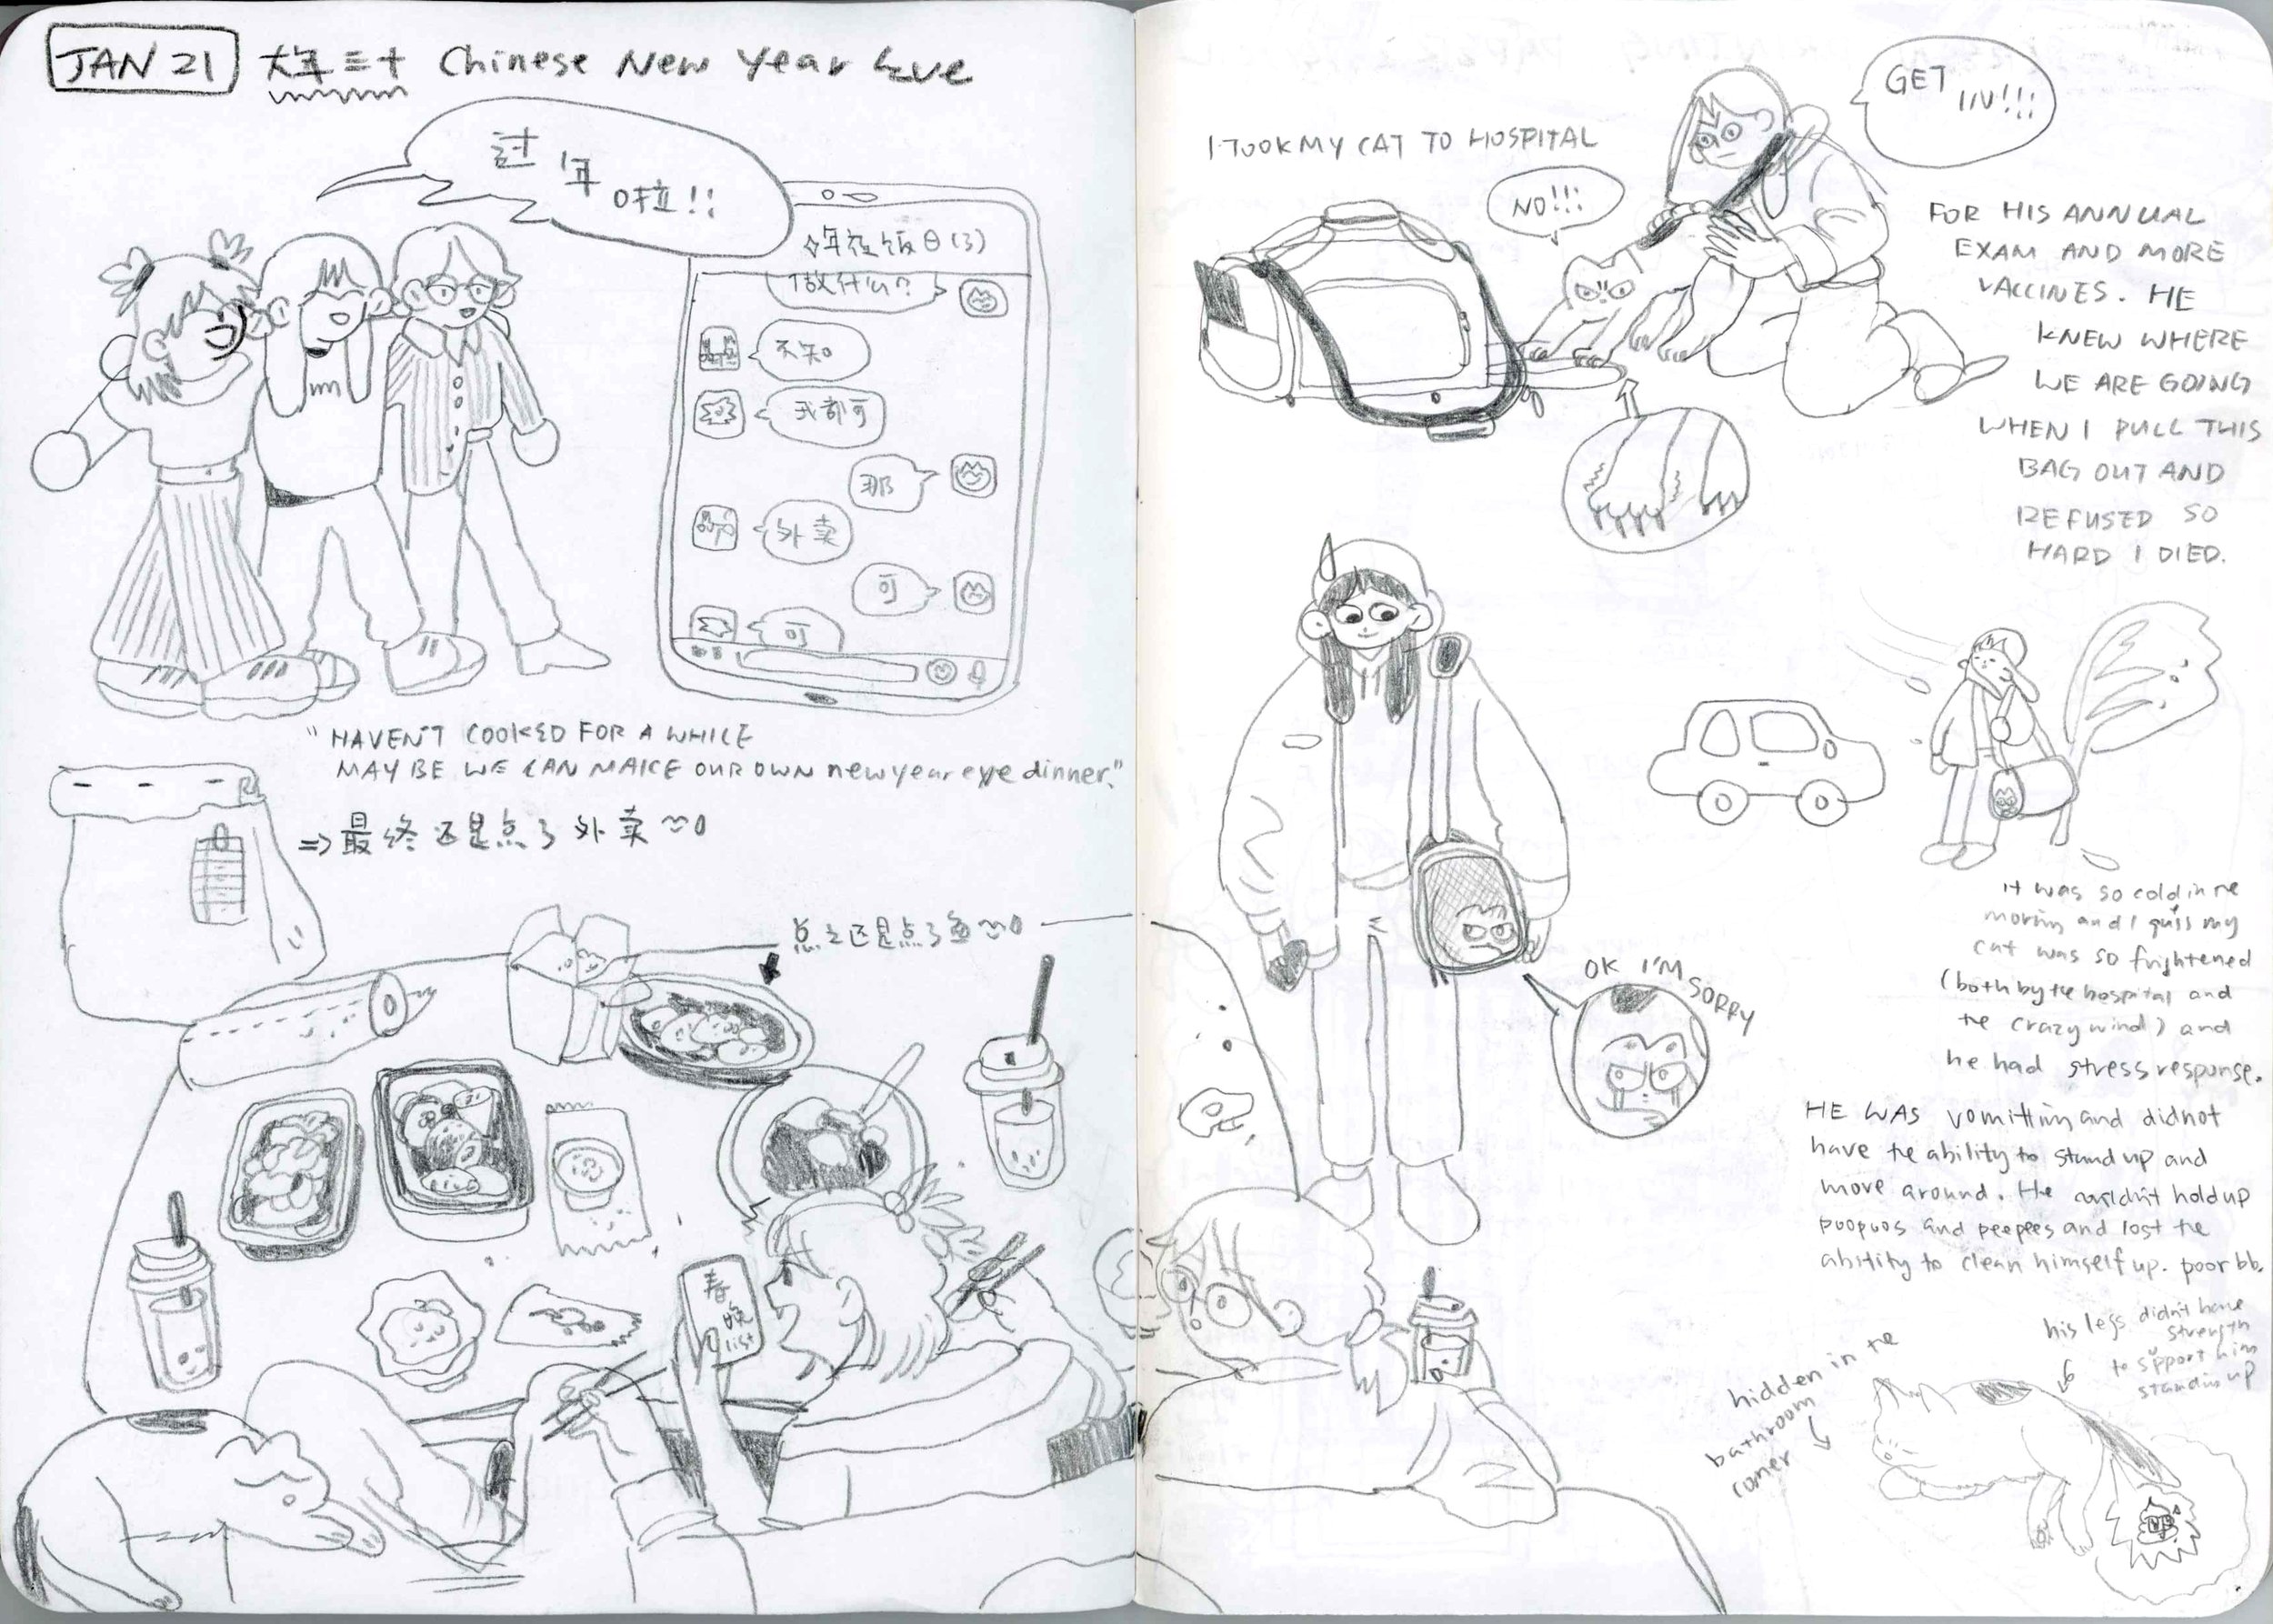 JAN 21 大年三十 Chinese New Year Eve
过年啦!!
年夜饭 (3)
做什么?
不知
我都可
那
外卖
可
可
"HAVEN'T COOKED FOR A WHILE
MAYBE WE CAN MAKE OUR OWN new year eye dinner."
⇒ 最终还是点了外卖
总之还是点了鱼
春晚 list
I TOOK MY CAT TO HOSPITAL
NO!!!
GET IN!!!
FOR HIS ANNUAL
EXAM AND MORE
VACCINES. HE
KNEW WHERE
WE ARE GOING
WHEN I PULL THIS
BAG OUT AND
REFUSED SO
HARD I DIED.
OK I'M SORRY
it was so cold in the
morning and I guess my
cat was so frightened
(both by the hospital and
the crazy wind) and
he had stress response.
HE WAS vomitting and didnot
have the ability to stand up and
move around. He couldn't hold up
poopoos and peepees and lost the
ability to clean himself up. poor bb.
hidden in the
bathroom
corner
his legs didn't have
strength
to support him
standing up